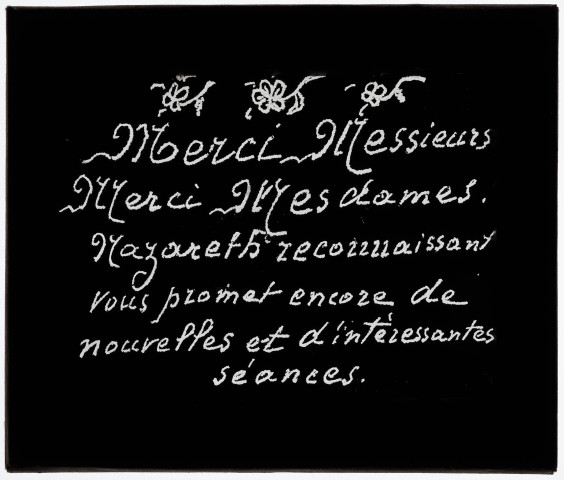 Merci Messieurs
Merci Mesdames.
Nazareth reconnaissant
vous promet encore de
nouvelles et d'intéressantes
séances.